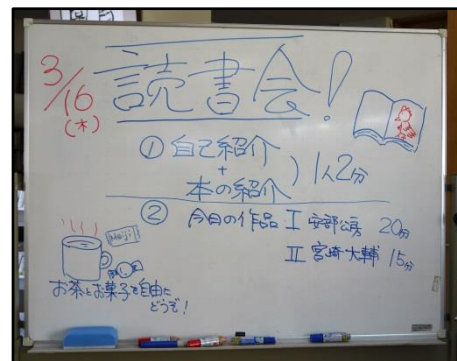 3/16
(木)
読書会!
① 自己紹介
+
本の紹介
) 1人2分
② 今日の作品 Ⅰ 安部公房 20分
Ⅱ 宮崎大輔 15分
Meiji
お茶とお菓子を自由に
どうぞ!